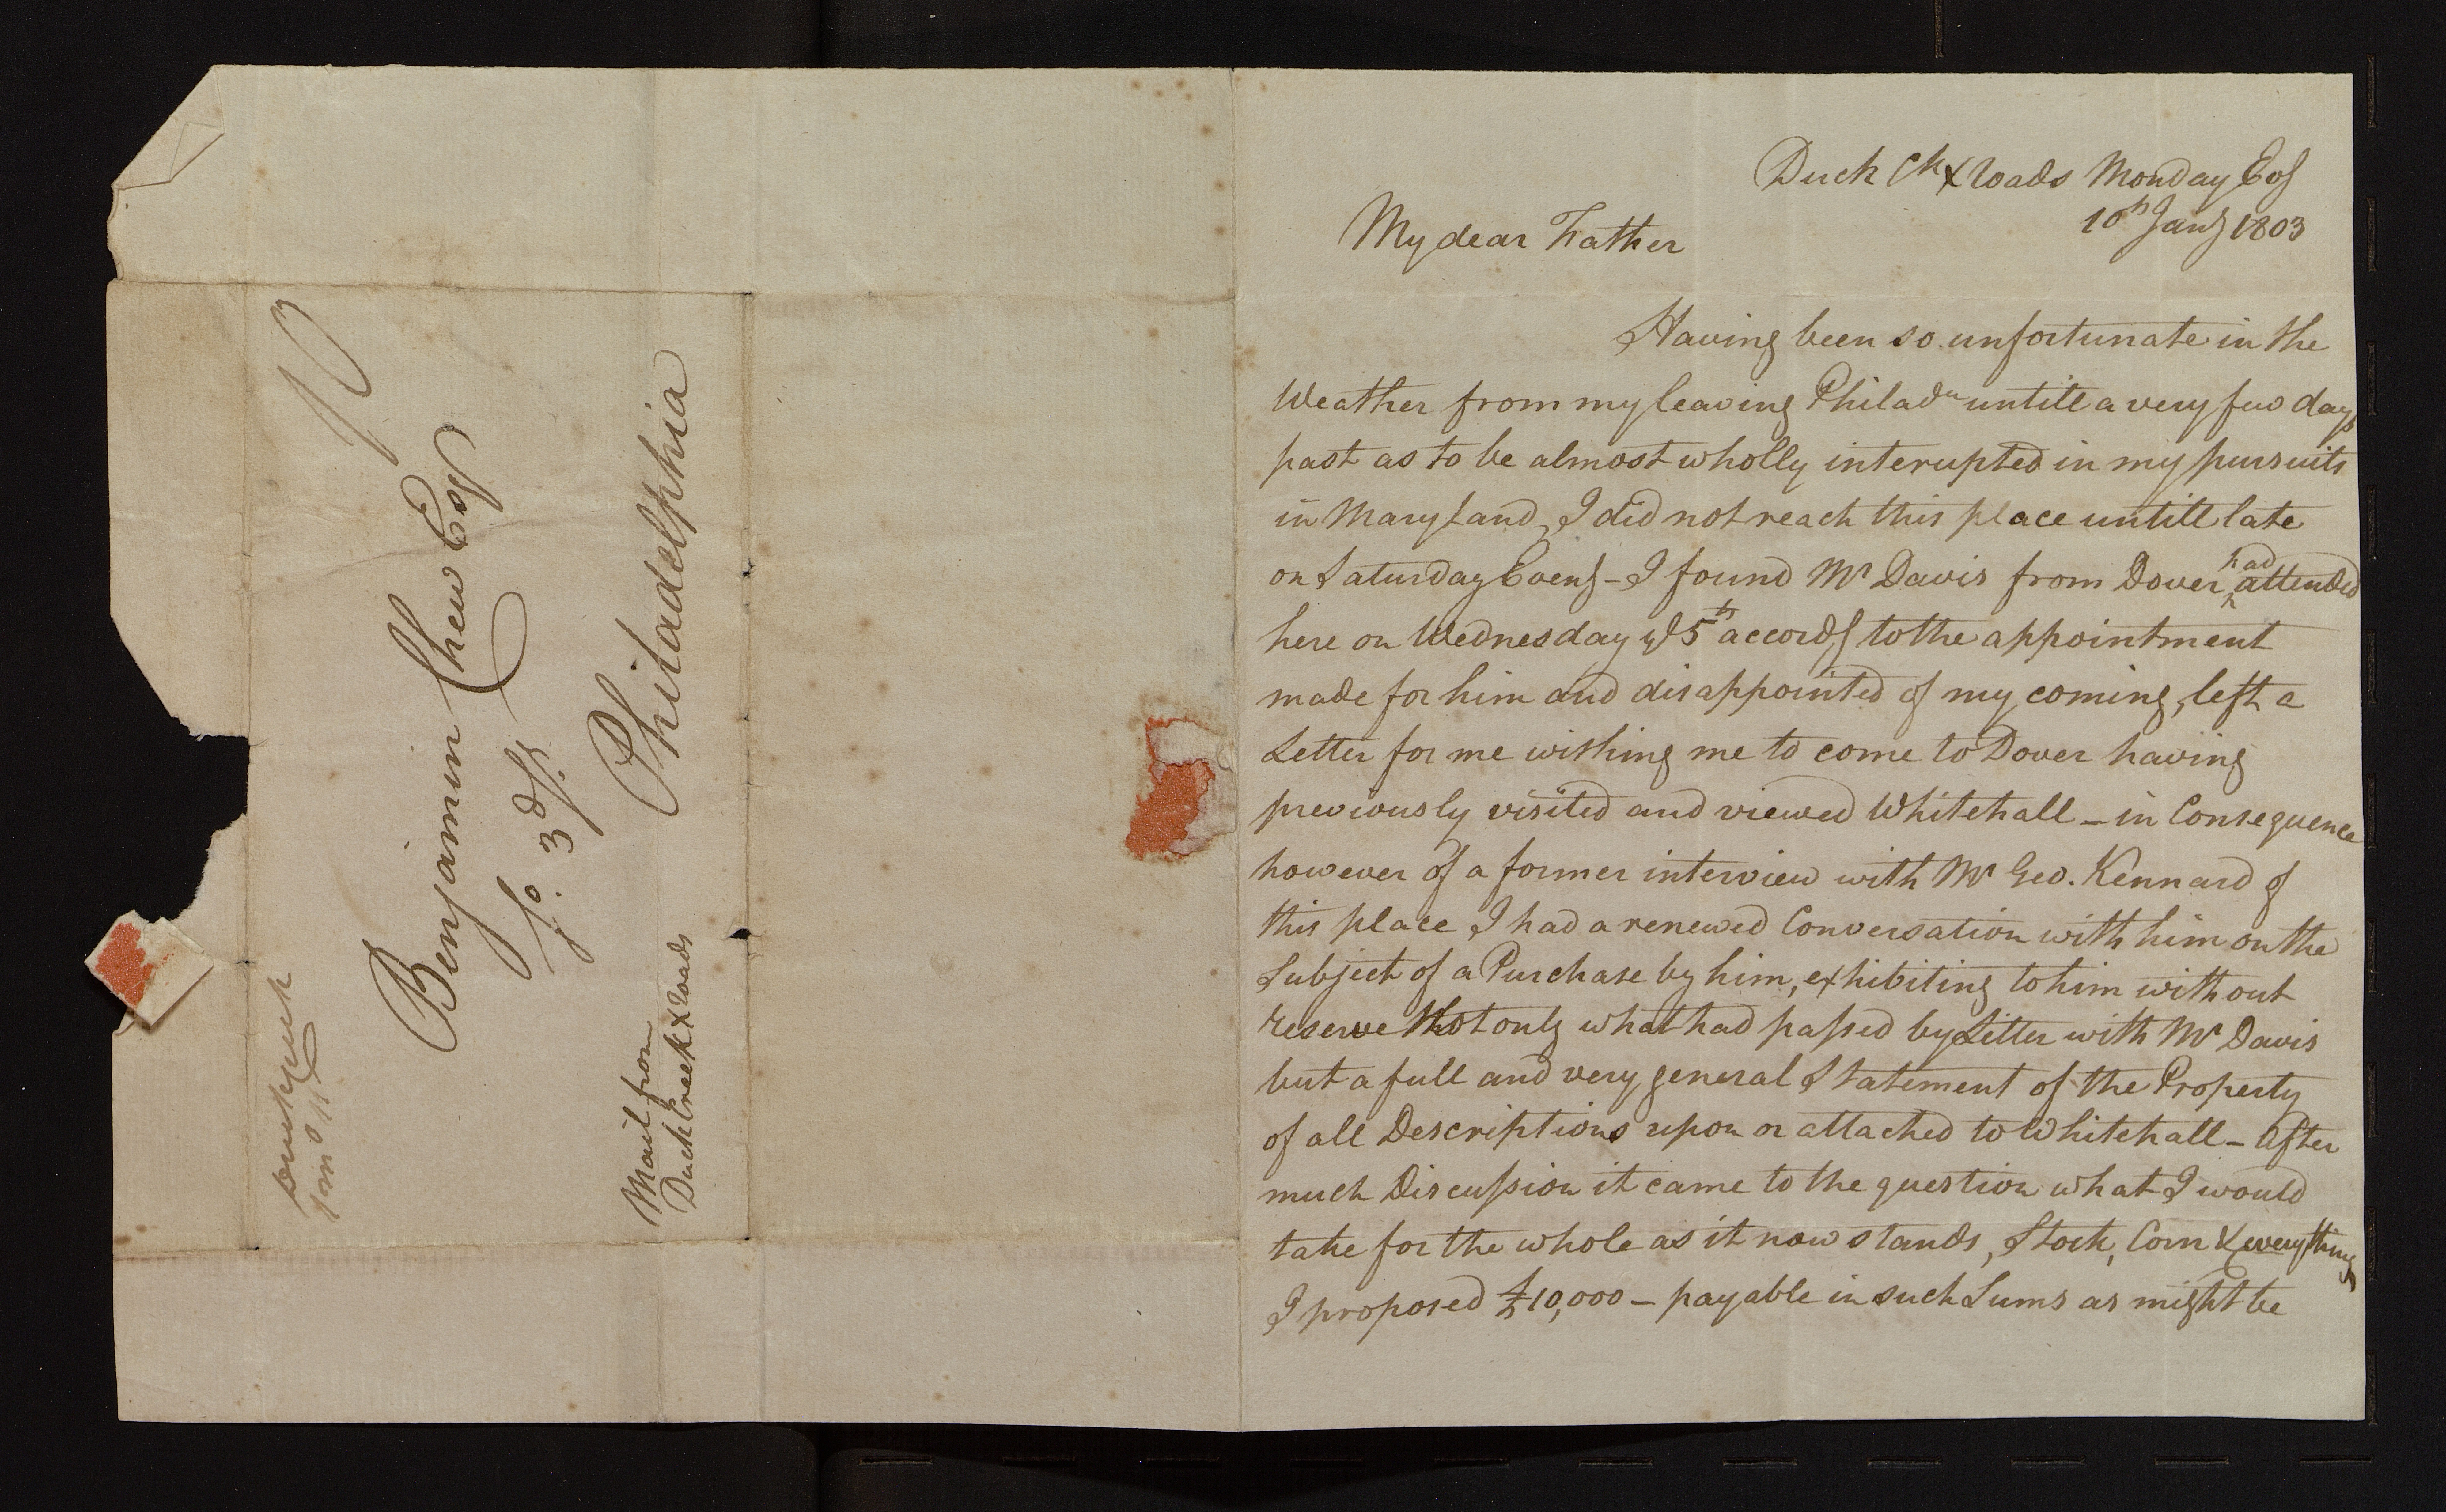 Benjamin Chew Esqr
So. 3d St.
Philadelphia
Mail from
Duck Creek X roads
Duck Creek
Jany 11
Duck Ck X roads Monday Evg
10h Jany 1803
My dear Father
Having been so unfortunate in the
Weather from my leaving Philada untill a very few days
past as to be almost wholly interupted in my pursuits
in Maryland, I did not reach this place untill late
on Saturday Eveng - I found Mr Davis from Dover had attended
here on Wednesday ye 5th accordg to the appointment
made for him and disappointed of my coming, left a
Letter for me wishing me to come to Dover having
previously visited and viewed Whitehall - in Consequence
however of a former interview with Mr Geo. Kennard of
this place I had a renewed Conversation with him on the
Subject of a Purchase by him, exhibiting to him without
reserve Not only what had passed by Letter with Mr Davis
but a full and very general Statement of the Property
of all Descriptions upon or attached to Whitehall - After
much Discussion it came to the question what I would
take for the whole as it now stands, Stock, Corn & everything
I proposed £10,000 - payable in such Sums as might be